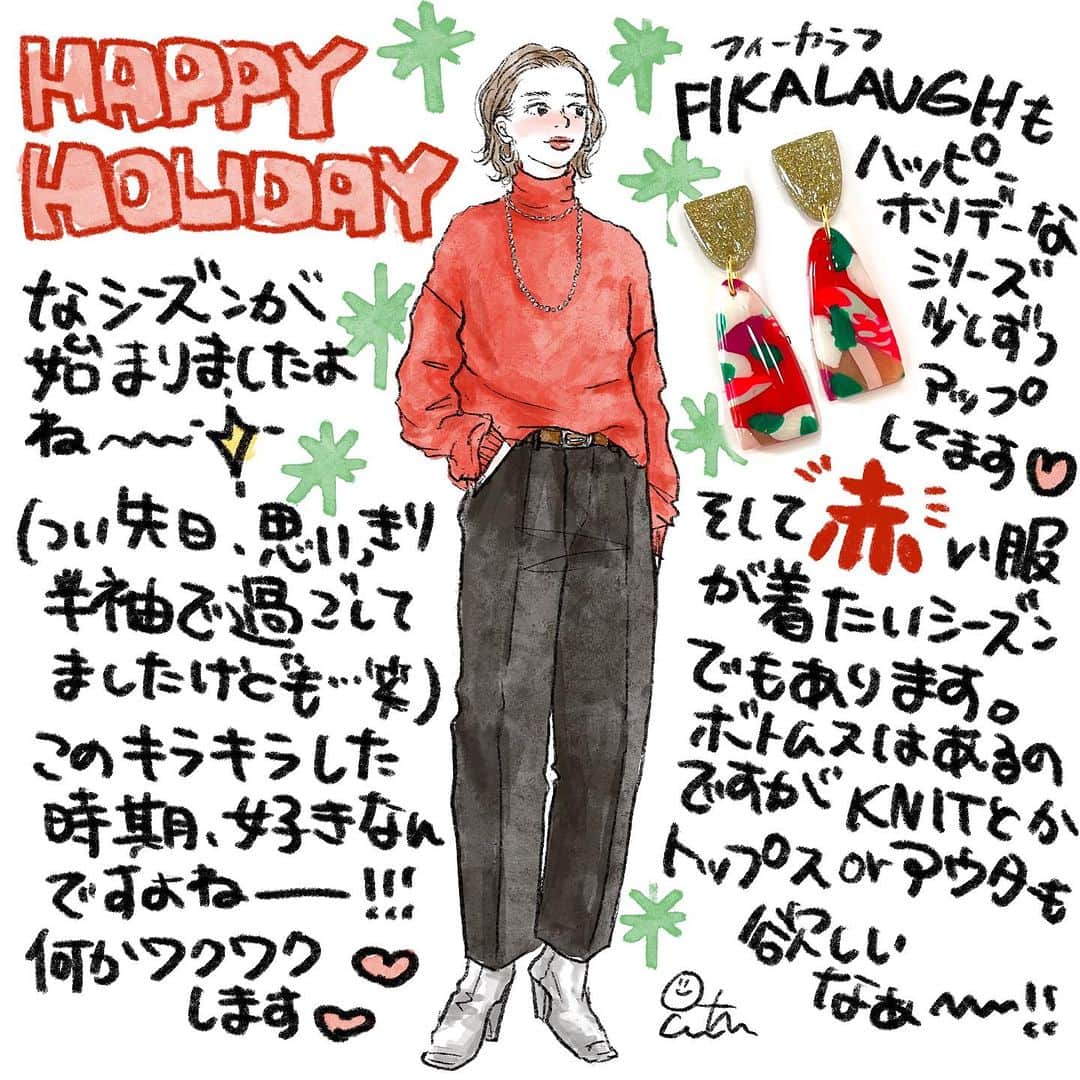 HAPPY
HOLIDAY
なシーズンが
始まりましたよ
ね〜〜
(つい先日、思いっきり
半袖で過ごして
ましたけども…笑)
このキラキラした
時期、好きなん
ですよねー!!!
何かワクワク
します
フィーカラフ
FIKALAUGHも
ハッピー
ホリデーな
シリーズ
少しずつ
アップ
してます
そして赤い服
が着たいシーズン
でもあります。
ボトムスはあるの
ですがKNITとか
トップスorアウターも
欲しい
なぁ〜〜!!